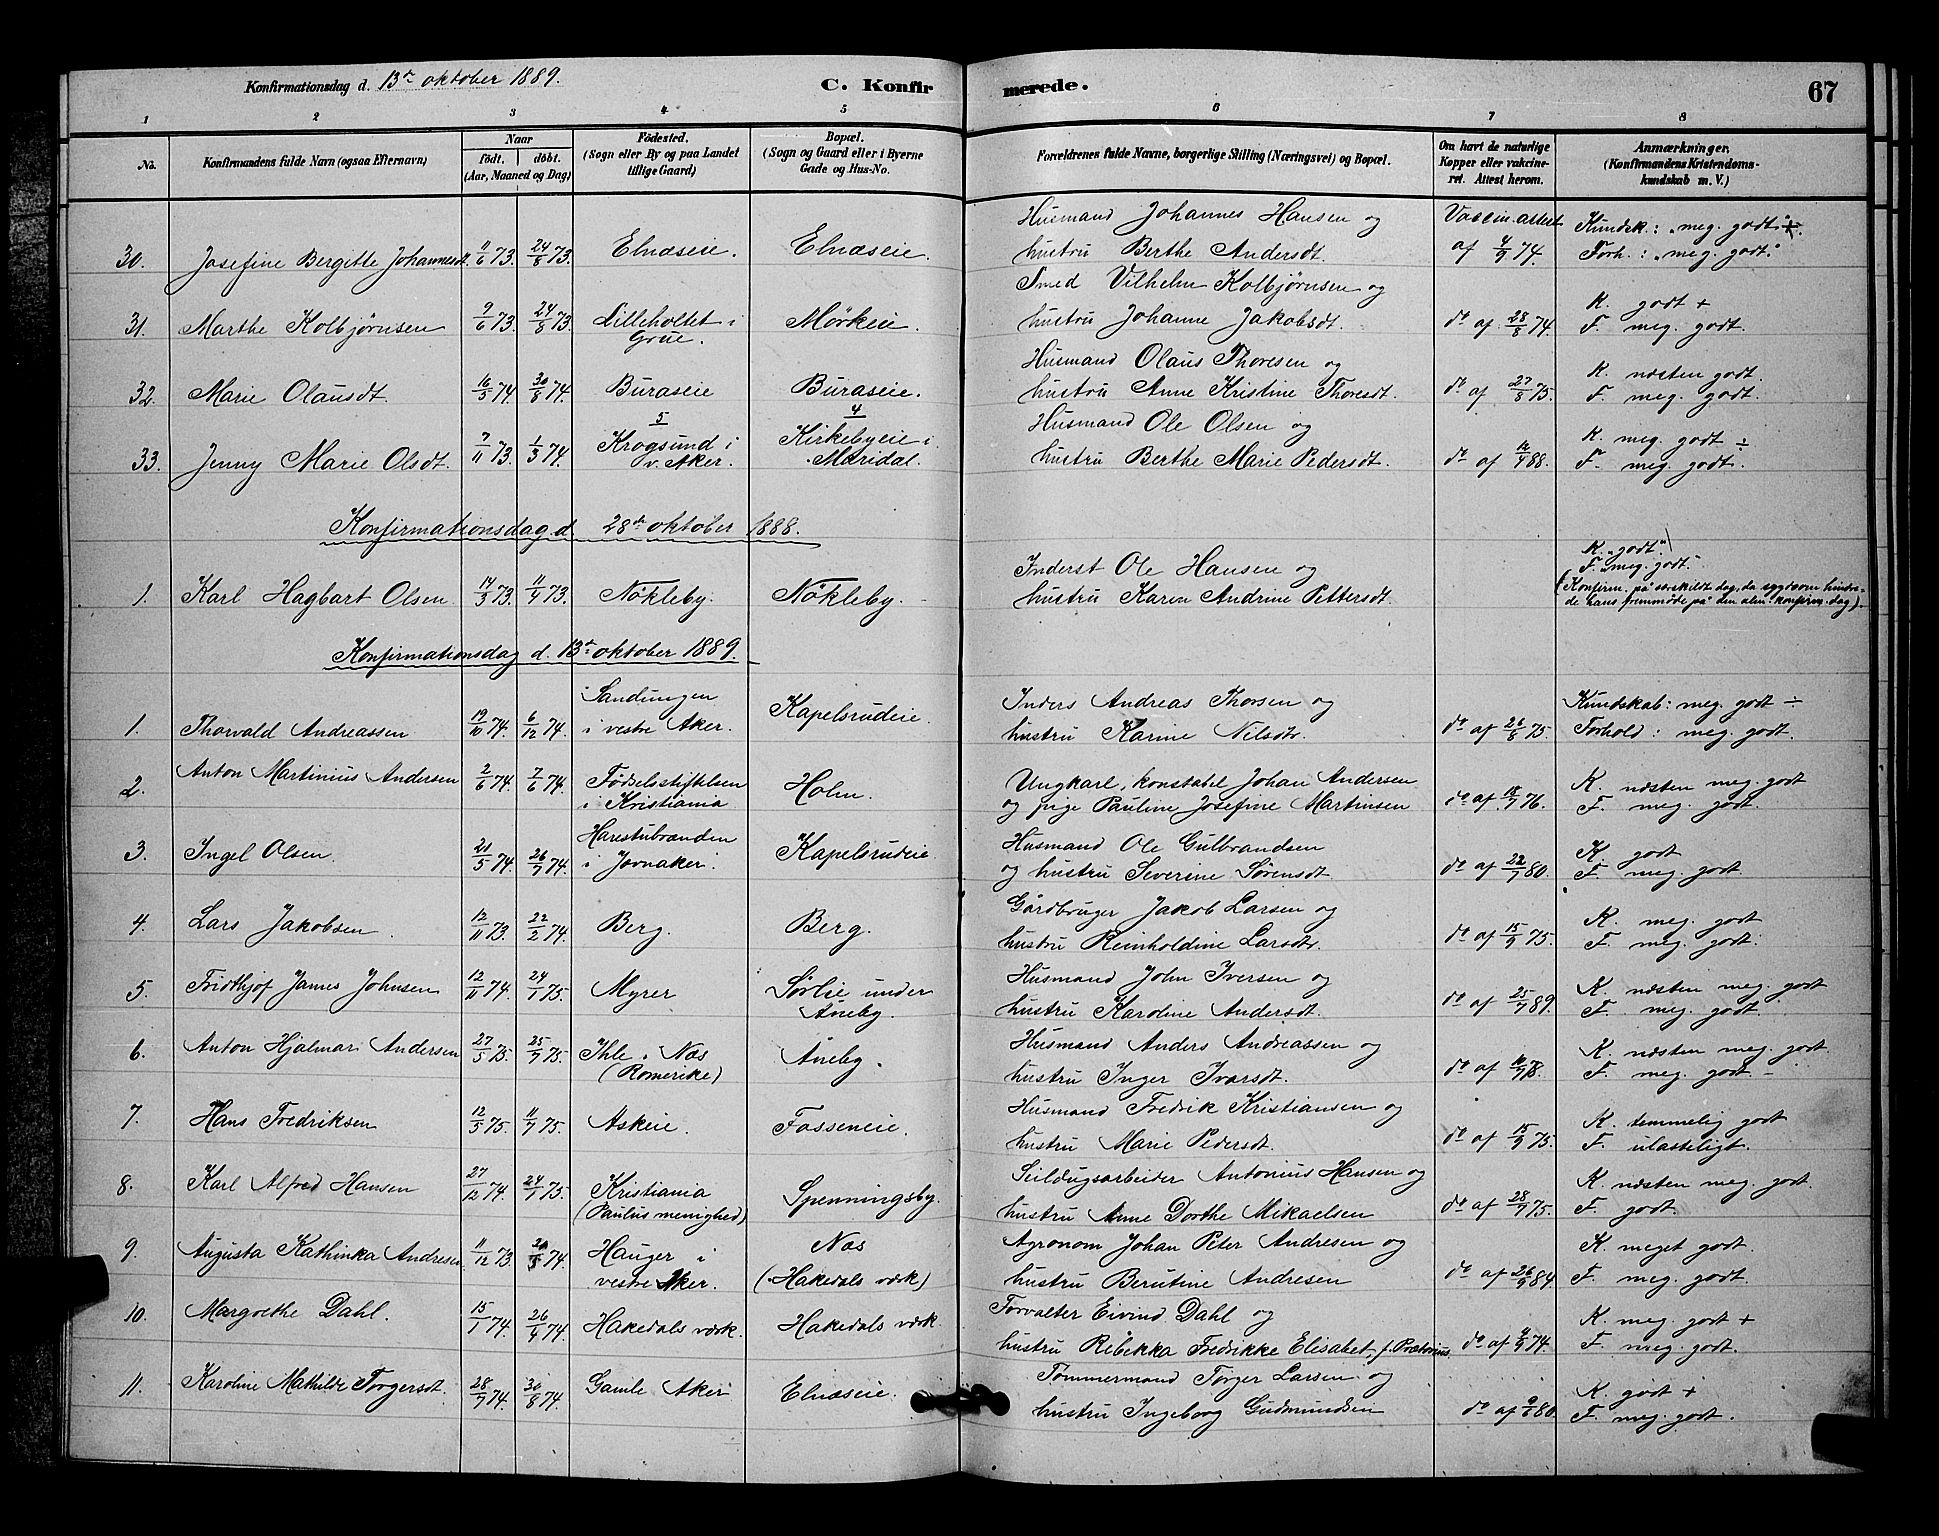 Konfirmationsdag d. 13de oktober 1889.
C. Konfirmerede.
67
1 2 3 4 5 6 7 8
No.
Konfirmandens fulde Navn (ogsaa Efternavn)
Naar
födt. döbt.
(Aar, Maaned og Dag)
Födested.
(Sogn eller By og paa Landet
tillige Gaard)
Bopæl.
(Sogn og Gaard eller i Byerne
Gade og Hus-No.
Forældrenes fulde Navne, borgerlige Stilling (Næringsvei) og Bopæl.
Om havt de naturlige
Kopper eller vakcine-
ret. Attest herom.
Anmærkninger.
(Konfirmandens Kristendoms-
kundskab m. V.)
30. Josefine Bergitte Johannesdt. 11/6 73. 24/8 73. Elnæseie. Elnæseie. Husmand Johannes Hansen og Vaccin. attest Kundsk.: "meg. godt" +.
hustru Berthe Andersdt. af 4/9 74. Forh.: "meg. godt."
31. Marthe Kolbjørnsen 9/6 73. 24/8 73. Lilleholtet i Mörkeie. Smed Vilhelm Kolbjørnsen og K. godt +
Grue. hustru Johanne Jakobsdt. do af 28/8 74. F. meg. godt.
32. Marie Olausdt. 16/5 74. 30/8 74. Buraseie Buraseie. Husmand Olaus Thoresen og K. næsten godt.
hustru Anne Kristine Thoresdt. do af 27/8 75. F. meg. godt.
5 4
33. Jenny Marie Olsdt. 7/11 73. 1/3 74. Krogsund i Kirkebyeie i Husmand Ole Olsen og K. meg. godt ÷
v. Aker. Maridal. hustru Berthe Marie Pedersdt. do af 88. F. meg. godt.
Konfirmationsdag d. 28de oktober 1888.
1. Karl Hagbart Olsen 14/3 73. 11/4 73. Nökleby. Nökleby. Inderst Ole Hansen og K. "godt."
hustru Karen Andrine Pettersdt. F. "meg. godt."
(Konfirm. på særskildt dag, da sygdom hindre-
de hans fremmöde på den alm. konfirm.dag).
Konfirmationsdag d. 13de oktober 1889.
1. Thorvald Andreassen 19/10 74. 6/12 74. Sandungen Kapelsrudeie. Inders Andreas Thorsen og Kundskab: meg. godt ÷
i vestre Aker. hustru Karine Nilsdtr. do af 26/8 75. Forhold: meg. godt.
2. Anton Martinius Andersen 2/6 74. 7/6 74. Födselsstiftelsen Holm. Ungkarl, konstabel Johan Andersen K. næsten meg. godt
i Kristiania og pige Pauline Josefine Martinsen do af 18/7 76. F. meg. godt.
3. Ingel Olsen. 21/5 74. 26/7 74. Harestubrænden Kapelsrudeie Husmand Ole Gulbrandsen K. godt
i Jevnaker. og hustru Severine Sørensdt. do af 22/7 80. F. meg. godt.
4. Lars Jakobsen. 12/11 73. 22/2 74. Berg. Berg. Gårdbruger Jakob Larsen og K. meg. godt
hustru Reinholdine Larsdtr. do af 15/9 75. F. meg. godt.
5. Fridthjof James Johnsen 12/11 74. 24/1 75. Myrer Sørlie under Husmand John Iversen og K. næsten meg. godt
Åneby. hustru Karoline Andersdt. do af 25/7 89. F. meg. godt.
6. Anton Hjalmar Andersen 27/5 75. 25/7 75. Ihle i Næs Åneby. Husmand Anders Andreassen og K. næsten meg. godt.
(Romerike) hustru Inger Ivarsdt. do af 78. F. meg. godt
7. Hans Fredriksen 12/5 75. 11/7 75. Askeie. Fosseneie. Husmand Fredrik Kristiansen og K. temmelig godt
hustru Marie Pedersdt. do af 15/9 75. F. ulasteligt.
8. Karl Alfred Hansen 27/12 74. 24/1 75. Kristiania Spenningsby. Seildugsarbeider Antonius Hansen og K. næsten meg. godt.
(Paulus menighed) hustru Anne Dorthe Mikaelsen do af 28/7 75. F. godt.
9. Augusta Kathinka Andresen 11/12 73. 74. Hauger i Næs Agronom Johan Peter Andresen og K. meget godt.
vestre Aker. (Hakedals værk) hustru Berutine Andresen do af 26/9 84. F. meg. godt.
10. Margrethe Dahl. 15/1 74. 26/4 74. Hakedals værk. Hakedals værk. Forvalter Eivind Dahl og K. meg. godt +
hustru Rebekka Fredrikke Elisabet, f. Prætorius. do af 4/9 74. F. meg. godt.
11. Karoline Mathilde Torgersdt. 28/7 74. 30/8 74. Gamle Aker Elnæseie. Tömmermand Torger Larsen og K. godt +
hustru Ingeborg Gudmundsen do af 9/6 80. F. meg. godt.